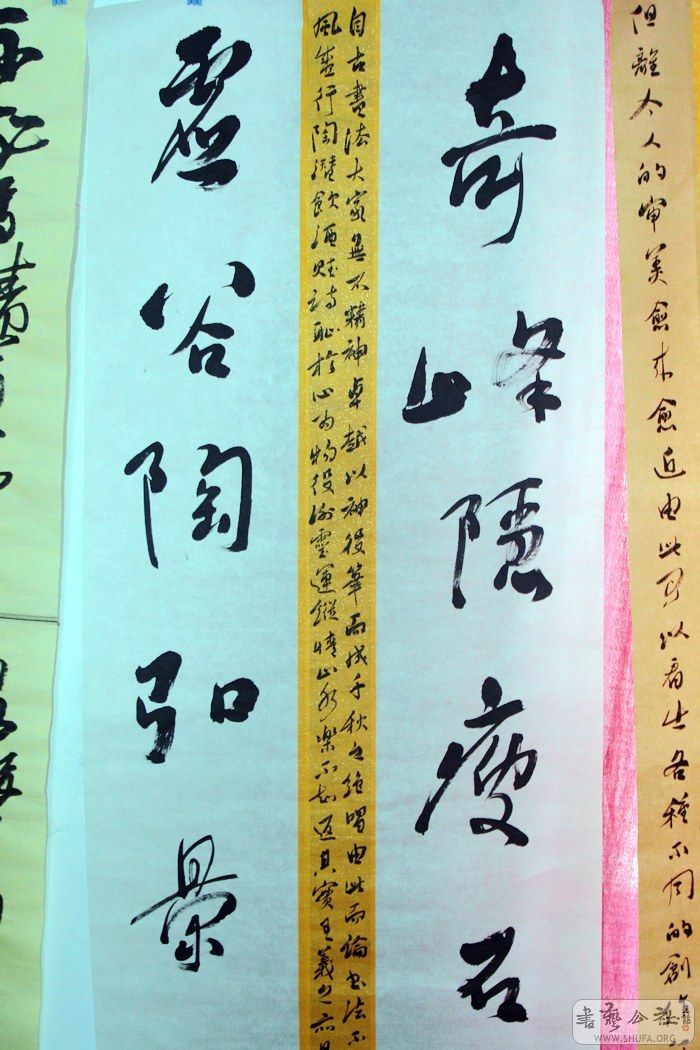 但離今人的審美愈來愈近由此可以看出各種不同的創
奇峰隱瘦石
自古書法大家無不精神卓越以神役筆而成千秋之絶唱由此而論書法不
風盛行陶潛飲酒賦詩恥於心為物役謝靈運縱情山水樂不知返其實王羲之亦是
虛谷陶弘景
書藝公社
WWW.SHUFA.ORG